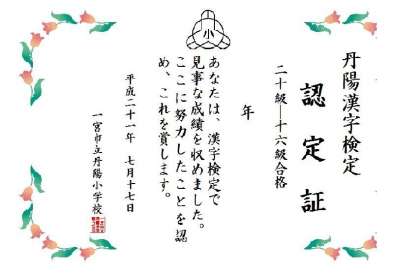 小
丹陽漢字検定
認定証
二十級―十六級合格
年
あなたは、漢字検定で
見事な成績を収めました。
ここに努力したことを認
め、これを賞します。
平成二十一年 七月十七日
一宮市立丹陽小学校